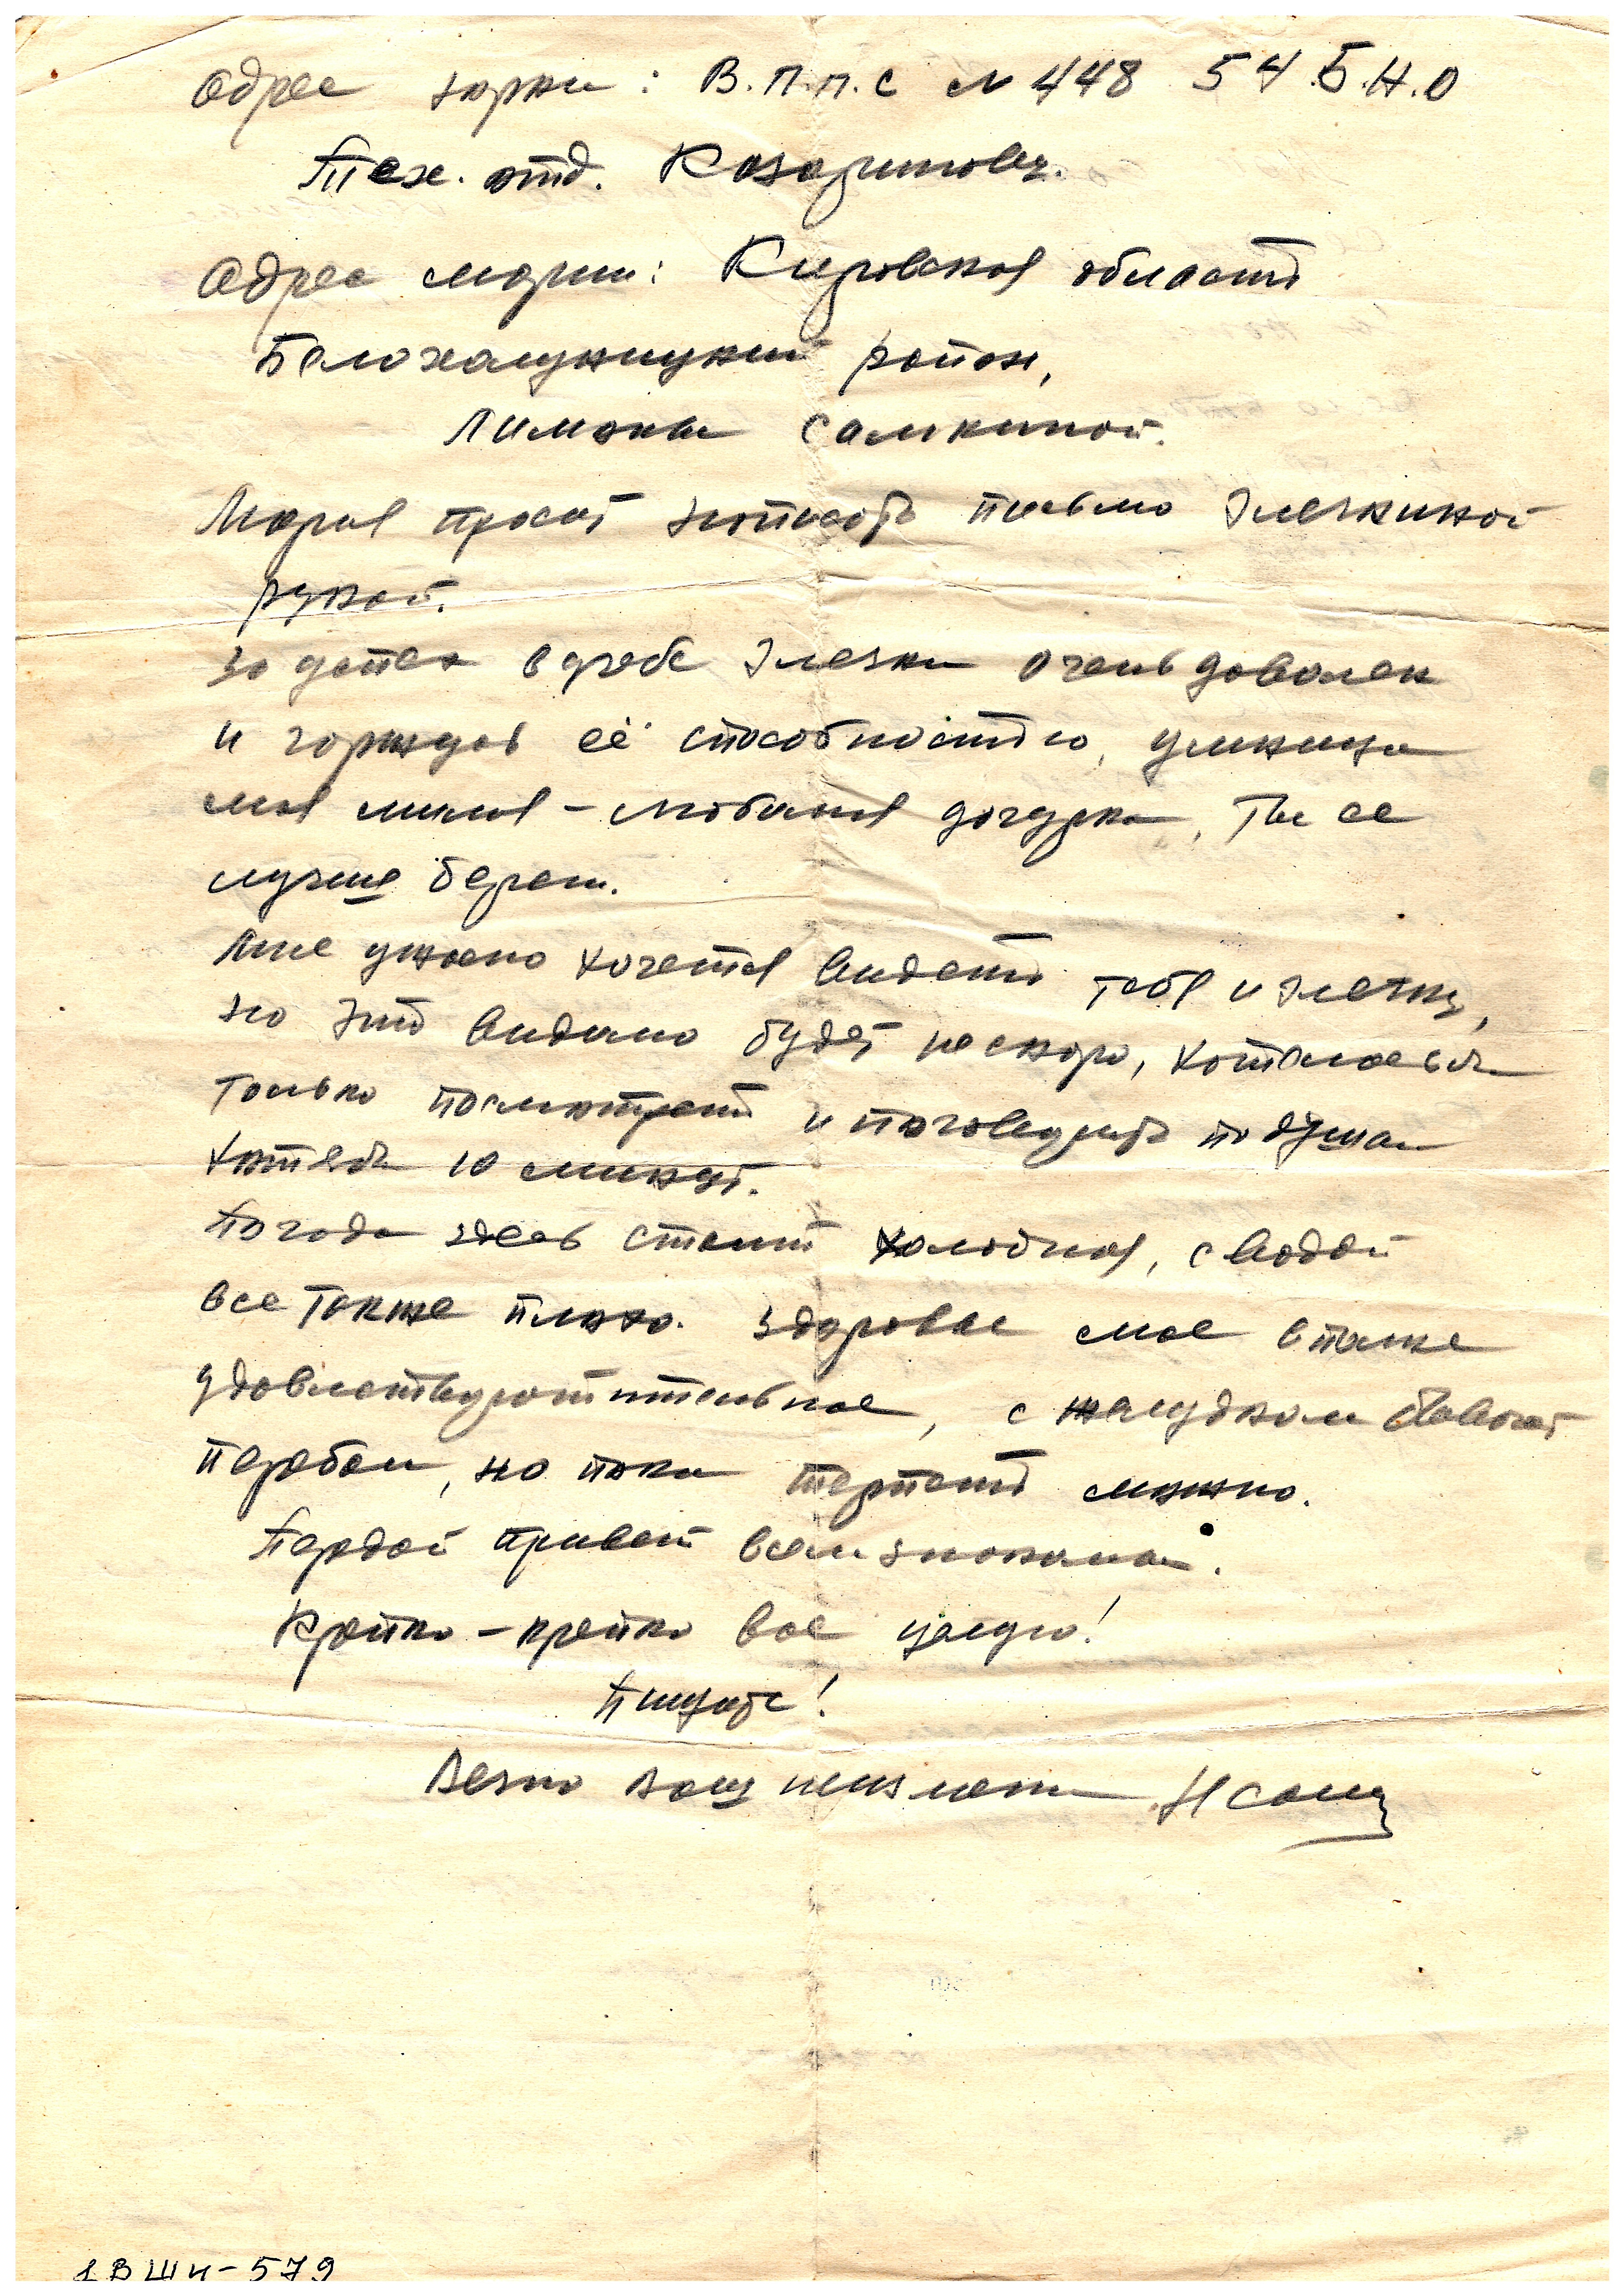 Адрес Юрки: В.П.П.С № 448 54 Б.Н.О
Тех. отд. Казаринову.
Адрес Марии: Кировская область
Белохалуницкий район,
Климковка Самкиной.
Мария просит написать письмо Элечкиной
рукой.
За успех в учебе Элечки очень доволен
и горжусь её способностью, умница
моя милая - любимая дочурка, Ты ее
лучше береги.
Мне ужасно хочется видеть тебя и Элечку,
но это видимо будет не скоро, хотелось бы
только посмотреть и поговорить по душам
хотя бы 10 минут.
Погода здесь стоит холодная, с водой
все также плохо. Здоровье мое в
удовлетворительное, с желудком бывают
перебои, но пока терпеть можно.
Передай привет всем знакомым.
Крепко - крепко Вас целую!
Пишите!
Вечно Ваш
1 В Ш И - 579